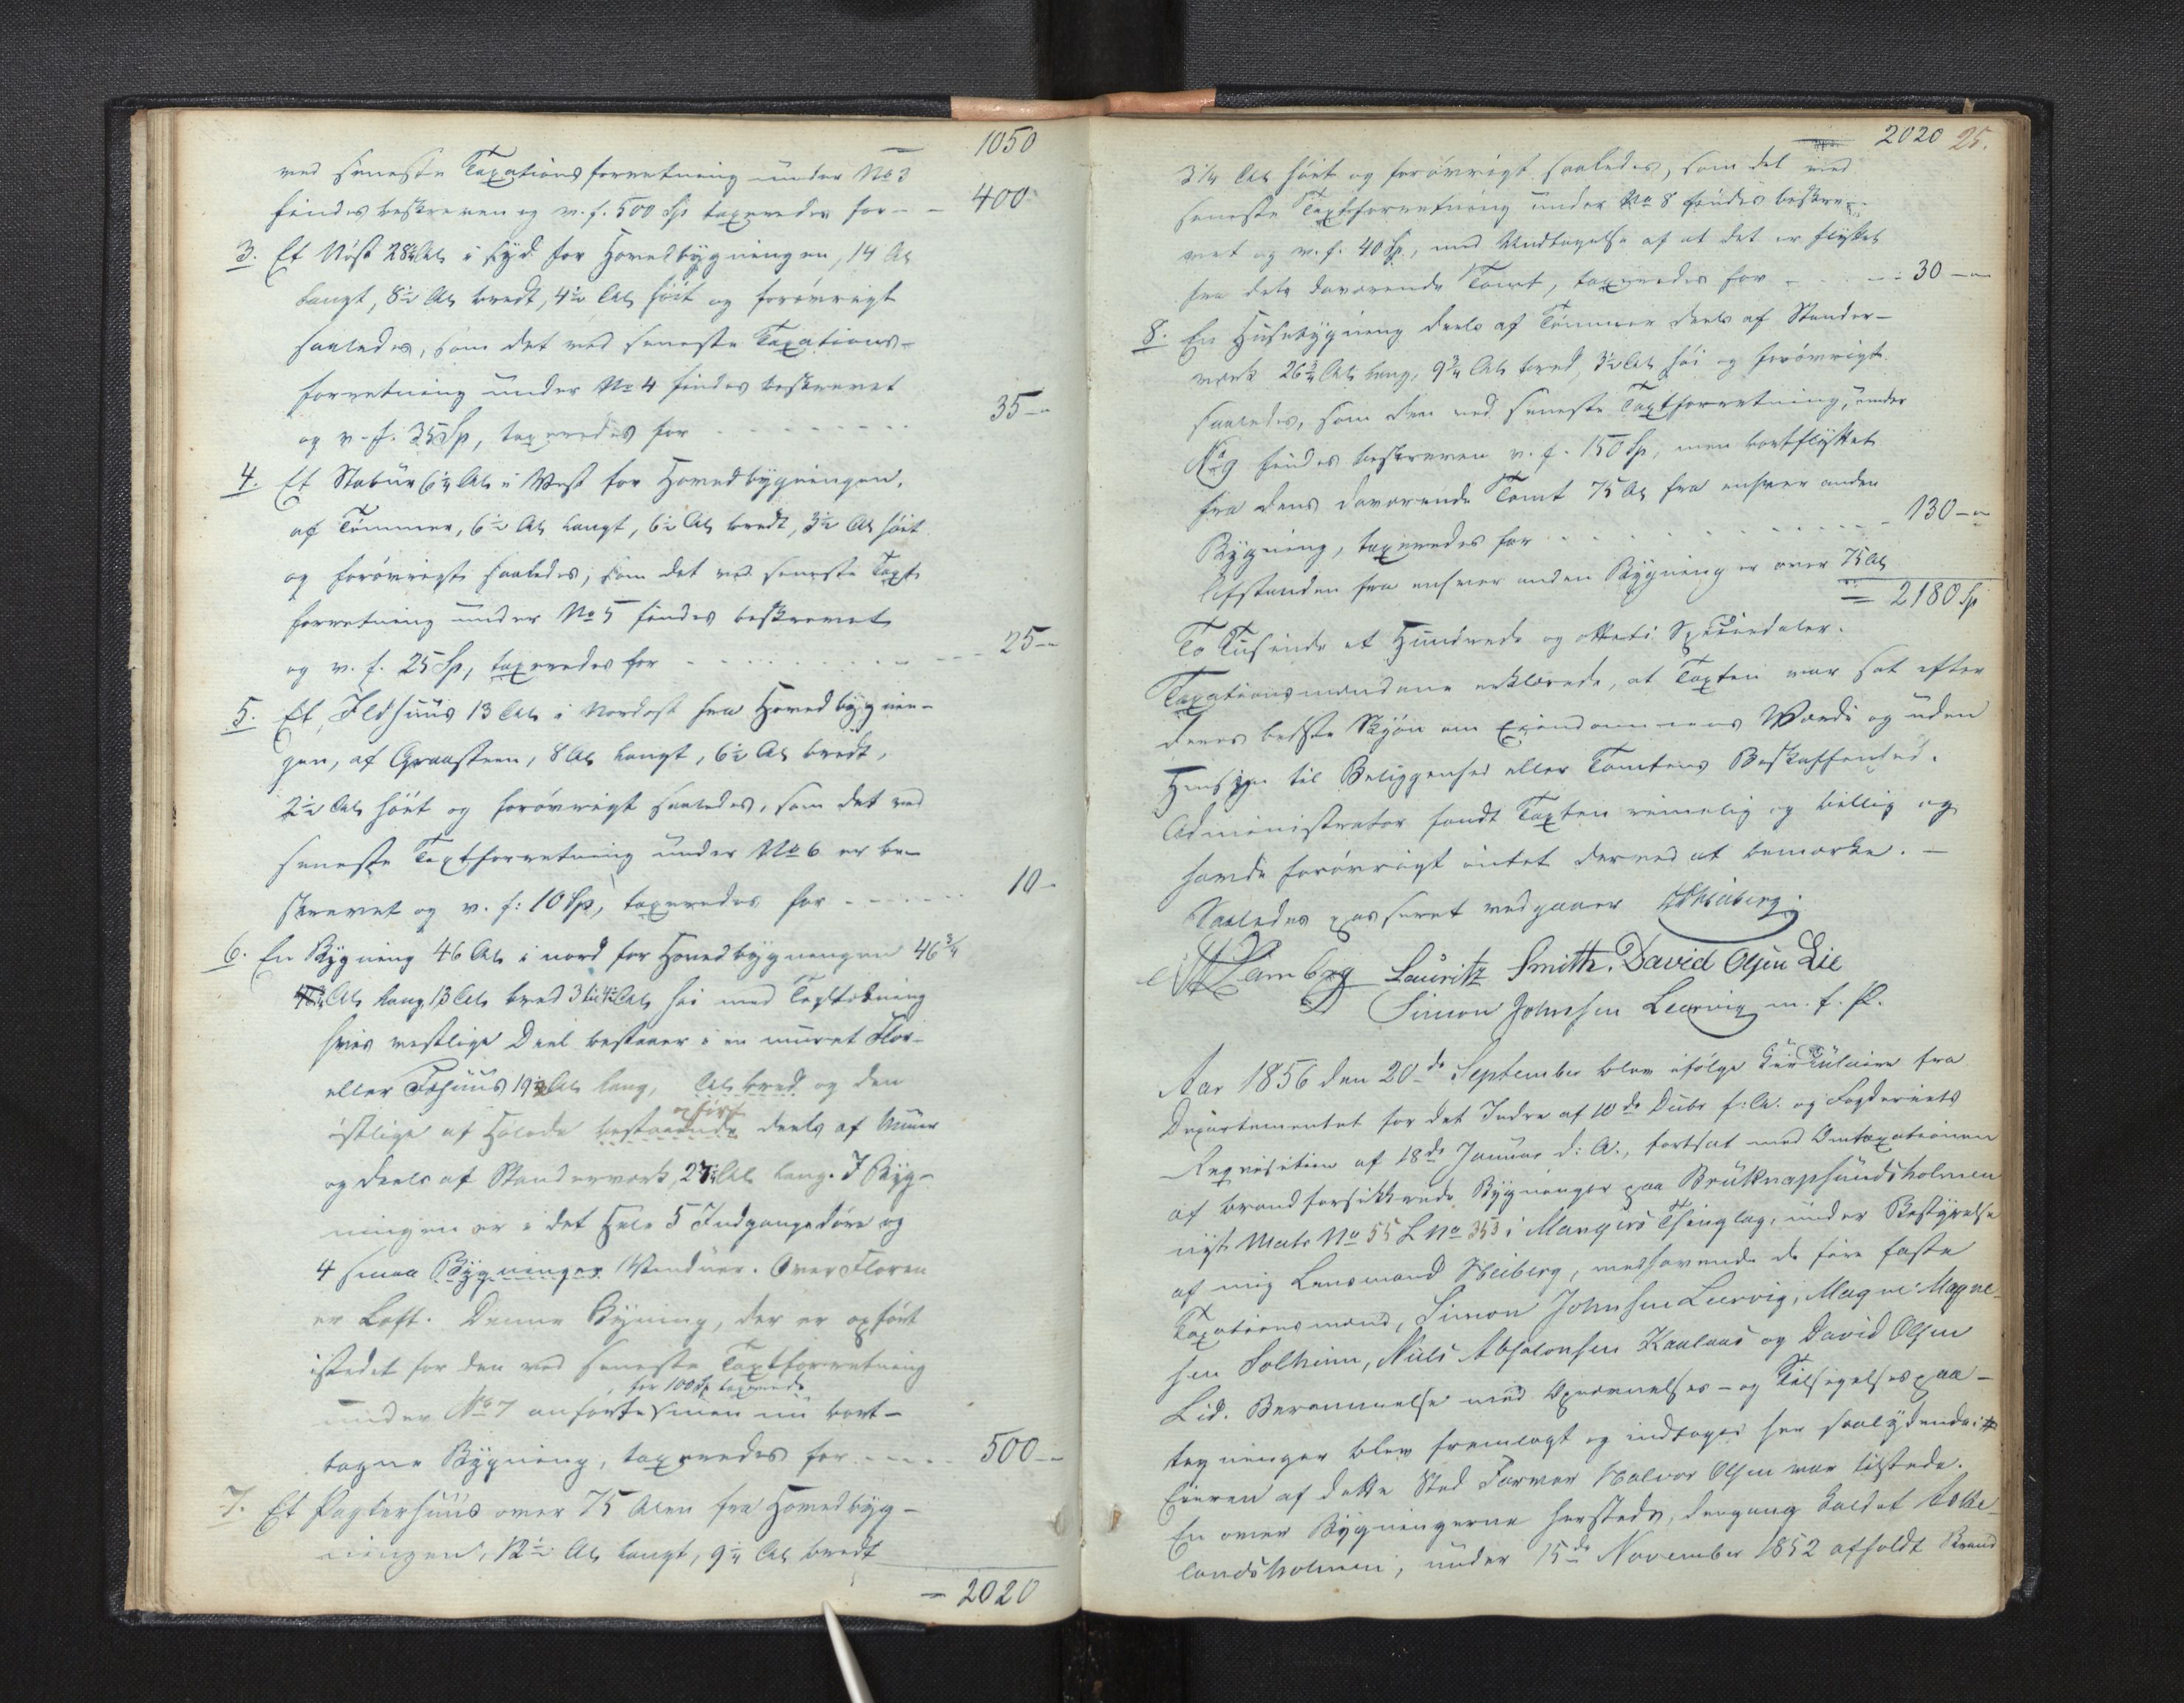 1050
ved seneste Taxationsforretning under No 3
findes beskreven og v. f. 500 Sp taxeredes for - - 400
3. Et Nöst 28½ Al i Syd for Hovedbygningen, 14 Al
langt, 8½ Al bredt, 4½ Al höit og forövrigt
saaledes, som det ved seneste Taxations-
forretning under No 4 findes beskrevet
og v. f. 35 Sp, taxeredes for - - - - - - - - 35 -"
4. Et Stabur 6¼ Al i Vest for Hovedbygningen,
af Tömmer, 6½ Al langt, 6½ Al bredt, 3½ Al höit
og forövrigt saaledes, som det ved seneste Taxt
forretning under No 5 findes beskrevet
og v. f. 25 Sp, taxeredes for - - - - - - - - - 25 -"
5. Et Ildhuus 13 Al i Nordost fra Hovedbygnin-
gen, af Graasteen, 8 Al langt, 6½ Al bredt,
2½ Al höit og forövrigt saaledes, som det ved
seneste Taxtforretning under No 6 er be-
skrevet og v. f: 10 Sp, taxeredes for - - - - - - 10 -
6. En Bygning 46 Al i nord for Hovedbygningen 46¾
Al lang, 13 Al bred 3 til 4½ Al höi med Tagtækning
hvis vestlige Deel bestaaer i en muret Flor-
eller Fæhuus 19½ Al lang, Al bred og den
opfört
östlige af Hölade bestaaende deels af Muur
og deels af Standerværk, 27¼ Al lang. I Byg-
ningen er i det Hele 5 Indgangsdöre og
4 smaa Bygninger Vinduer. Over Floren
er Loft. Denne Bygning, der er opfört
istedet for den ved seneste Taxtforretning
for 100 Sp taxerede
under No 7 anförte men nu bort-
tagne Bygning, taxeredes for - - - - - 500 - -
7. Et Pagterhuus over 75 Alen fra Hovedbyg-
ningen, 12½ Al langt, 9¼ Al bredt
- 2020
2020 25.
3¼ Al höit og forövrigt saaledes, som det ved
seneste Taxtforretning under No 8 findes beskre-
vet og v. f. 40 Sp, med Undtagelse af at det er flyttet
fra dets daværende Tomt, taxeredes for - - - - 30 - "
8. En Huusbygning deels af Tömmer deels af Stander-
værk 26¾ Al lang, 9¾ Al bred, 3½ Al höi og forövrigt
saaledes, som den ved seneste Taxtforretning, under
No 9 findes beskreven v. f. 150 Sp, men bortflyttet
fra dens daværende Tomt 75 Al fra enhver anden
Bygning, taxeredes for - - - - - - - - - 130 - "
Afstanden fra enhver anden Bygning er over 75 Al
= 2180 Sp
To Tusinde et Hundrede og otteti Speciedaler.
Taxationsmændene erklærede, at Taxten var sat efter
deres bedste Skjön om Eiendommens Værdi og uden
Hensyn til Beliggenhed eller Tomtens Beskaffenhed.
Administrator fandt Taxten rimelig og billig og
havde forövrigt intet derved at bemærke. -
Saaledes passeret vedgaaer Heiberg.
Lauritz Smith. David Olsen Lie
Simon Johnsen Leervig m. f. P.
Aar 1856 den 20de September blev ifölge Circulaire fra
Departementet for det Indre af 10de Decbr f: A. og Fogderiets
Reqvisition af 18de Januar d: A., fortsat med Omtaxationen
af brandforsikkrede Bygninger paa Bruknapsundsholmen
nyt Matr No 55 L No 353 i Mangers Thinglag, under Bestyrelse
af mig Lensmand Heiberg, medhavende de fire faste
Taxationsmænd, Simon Johnsen Leervig, Magne Magne-
sen Solheim, Niels Absalonsen Kaalaas og David Olsen
Lid. Berammelse med Opnævnelses- og Tilsigelsespaa-
tegninger blev fremlagt og indtages her saalydende: #
Eieren af dette Sted Farver Halvor Olsen var tilstede.
En over Bygningerne hersteds, dengang kaldet Aske-
landsholmen, under 15de November 1852 afholdt Brand